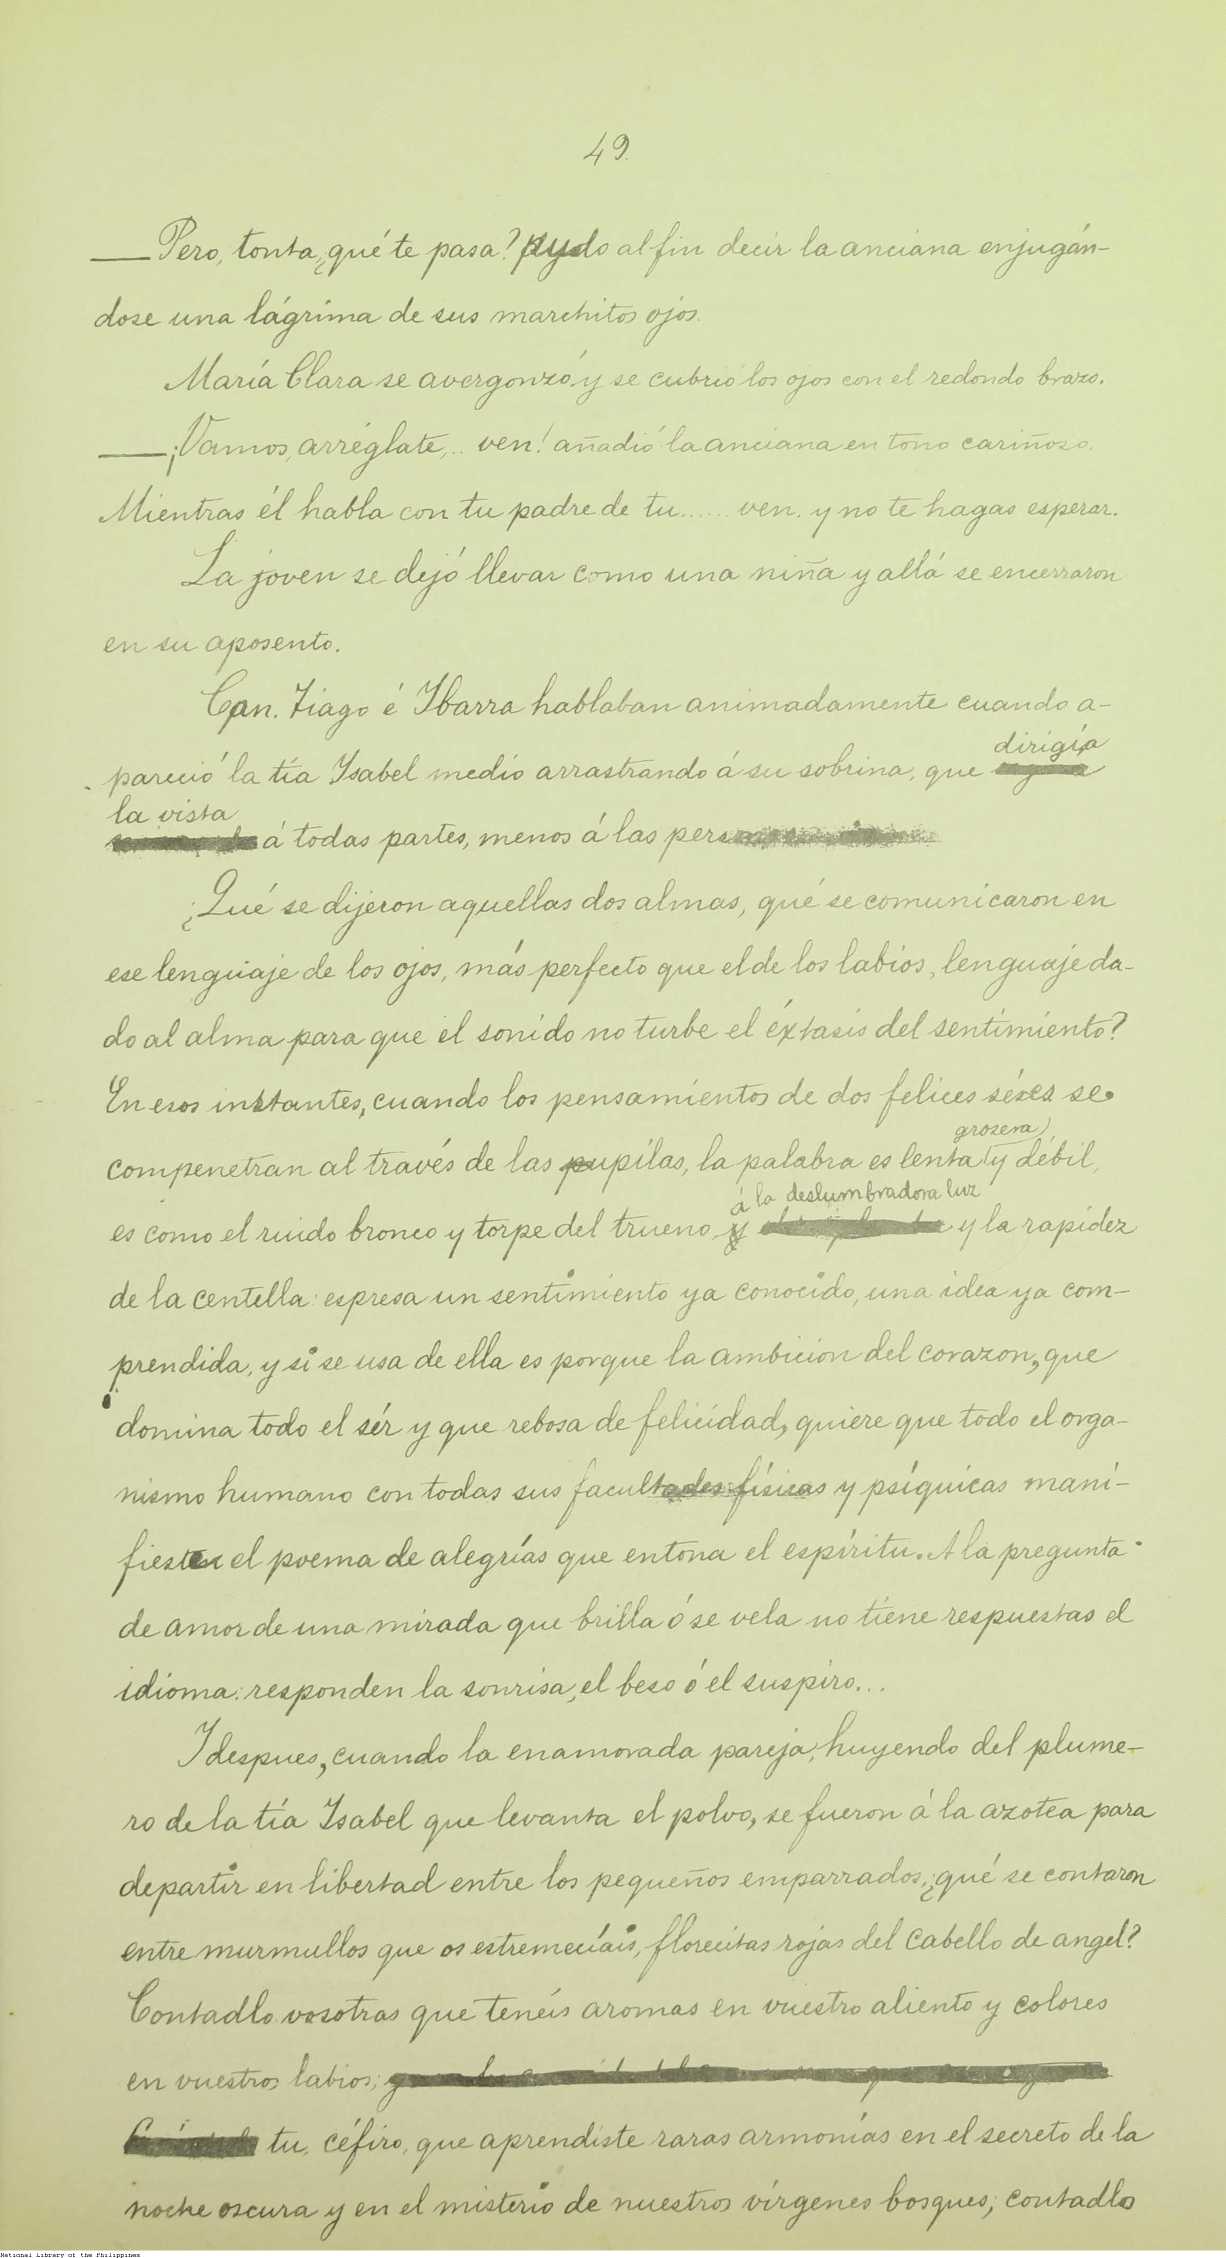 49.
—Pero, tonta, ¿qué te pasa? pudo al fin decir la anciana enjugán-
dose una lágrima de sus marchitos ojos.
María Clara se avergonzó y se cubrió los ojos con el redondo brazo.
—¡Vamos, arréglate,.. ven! añadió la anciana en tono cariñoso.
Mientras él habla con tu padre de tu...... ven. y no te hagas esperar.
La joven se dejó llevar como una niña y allá se encerraron
en su aposento.
Cpan. Tiago é Ibarra hablaban animadamente cuando a-
dirigía
pareció la tía Isabel medio arrastrando á su sobrina, que
la vista
á todas partes, menos á las
¿Qué se dijeron aquellas dos almas, qué se comunicaron en
ese lenguaje de los ojos, más perfecto que el de los labios, lenguaje da-
do al alma para que el sonido no turbe el éxtasis del sentimiento?
En esos instantes, cuando los pensamientos de dos felices séres se
grosera
compenetran al través de las pupilas, la palabra es lenta y débil,
á la deslumbradora luz
es como el ruido bronco y torpe del trueno y la rapidez
de la centella: espresa un sentimiento ya conocido, una idea ya com-
prendida, y si se usa de ella es porque la ambicion del corazon, que
domina todo el sér y que rebosa de felicidad, quiere que todo el orga-
nismo humano con todas sus facultades físicas y psíquicas mani-
fieste el poema de alegrías que entona el espíritu. A la pregunta
de amor de una mirada que brilla ó se vela no tiene respuestas el
idioma: responden la sonrisa, el beso ó el suspiro...
I despues, cuando la enamorada pareja, huyendo del plume-
ro de la tía Isabel que levanta el polvo, se fueron á la azotea para
departir en libertad entre los pequeños emparrados, ¿qué se contaron
entre murmullos que os estremecíais, florecitas rojas del cabello de angel?
Contadlo vosotras que tenéis aromas en vuestro aliento y colores
en vuestros labios;
tu, céfiro, que aprendiste raras armonías en el secreto de la
noche oscura y en el misterio de nuestros vírgenes bosques; contadlo
National Library of the Philippines